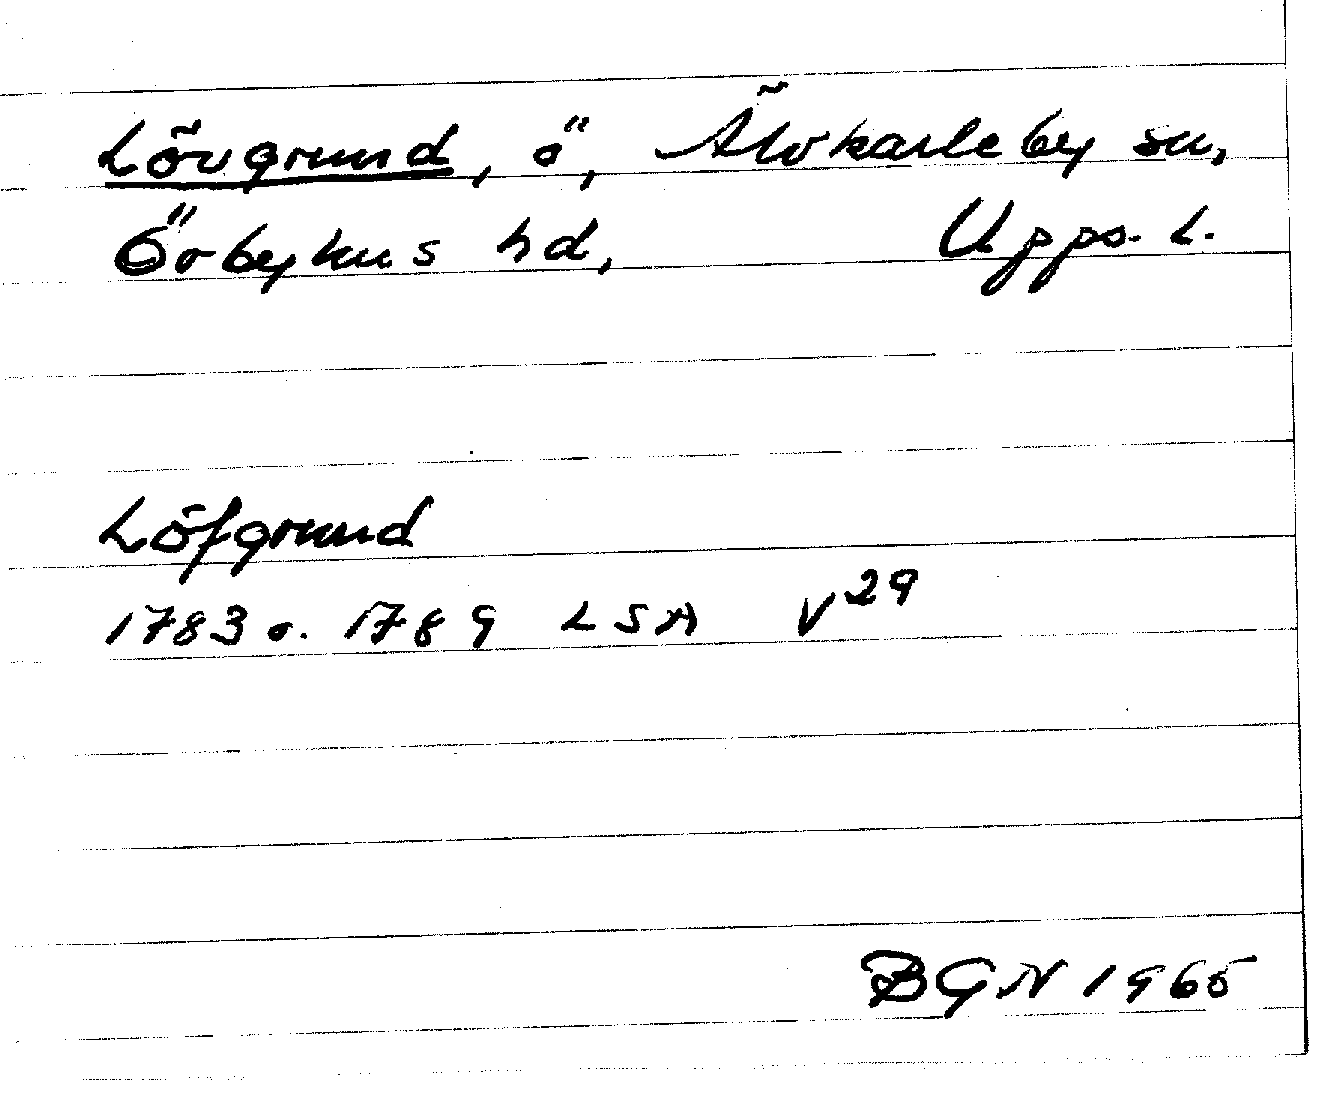 Lövgrund, ö, Älvkarleby sn,
Örbyhus hd, Upps. l.
Löfgrund
1783 o. 1789 LSA V 29
BGN 1965